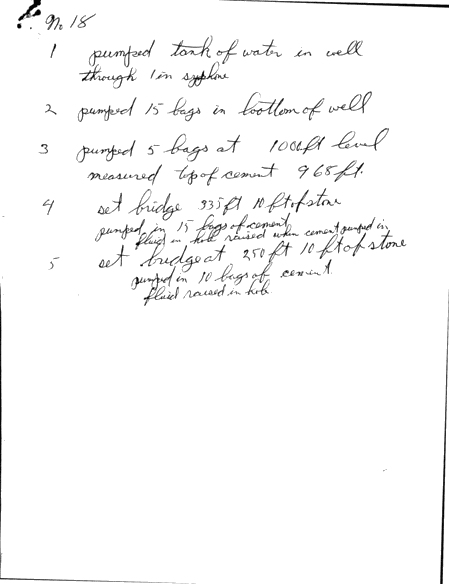 No 18
1 pumped tank of water in well
through 1 in syphline
2 pumped 15 bags in boottom of well
3 pumped 5 bags at 1006ft level
measured top of cement 968ft.
4 set bridge 335ft 10 ft of stone
pumped in 15 bags of cement
fluid in hole raised when cement pumped in
5 set bridge at 250 ft 10 ft of stone
pumped in 10 bags of cement
fluid raised in hole